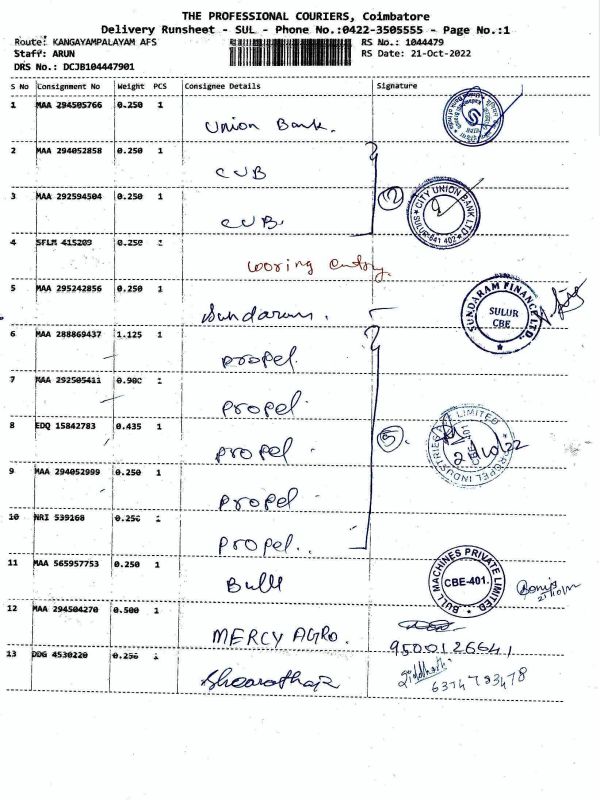 THE PROFESSIONAL COURIERS, Coimbatore
Delivery Runsheet - SUL - Phone No.:0422-3505555 - Page No.:1
Route: KANGAYAMPALAYAM AFS RS No.: 1044479
Staff: ARUN RS Date: 21-Oct-2022
DRS No.: DCJB104447901
S No Consignment No Weight PCS Consignee Details Signature
1 MAA 294505766 0.250 1 Union Bank.
2 MAA 294052858 0.250 1 CUB
3 MAA 292594504 0.250 1 CUB.
(2) CITY UNION BANK LTD SULUR-641 402
4 SFLM 415209 0.250 1 woring entry.
5 MAA 295242856 0.250 1 Sundaram. SUNDARAM FINANCE LTD. SULUR CBE
6 MAA 288869437 1.125 1 propel.
7 MAA 292505411 0.900 1 propel
8 EDQ 15842783 0.435 1 propel (5). PROPEL INDUSTRIES LIMITED CBE-401
9 MAA 294052999 0.250 1 propel
10 NRI 539168 0.250 1 propel..
11 MAA 565957753 0.250 1 Bull BULL MACHINES PRIVATE LIMITED CBE-401.
12 MAA 294504270 0.500 1 MERCY AGRO. 9500126641
13 DDG 4530220 0.250 1 Siddharth 6374783478